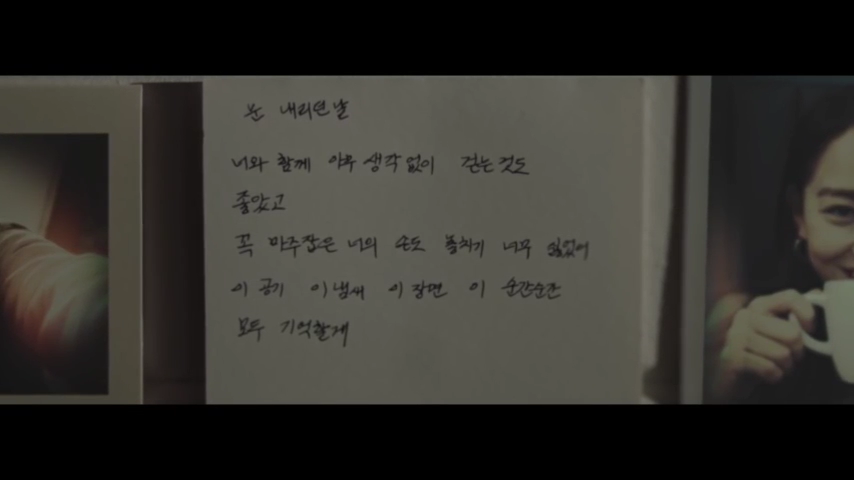 눈 내리던 날
너와 함께 아무 생각 없이 걷는 것도
좋았고
꼭 마주잡은 너의 손도 놓치기 너무 싫었어
이 공기 이 냄새 이 장면 이 순간순간
모두 기억할게